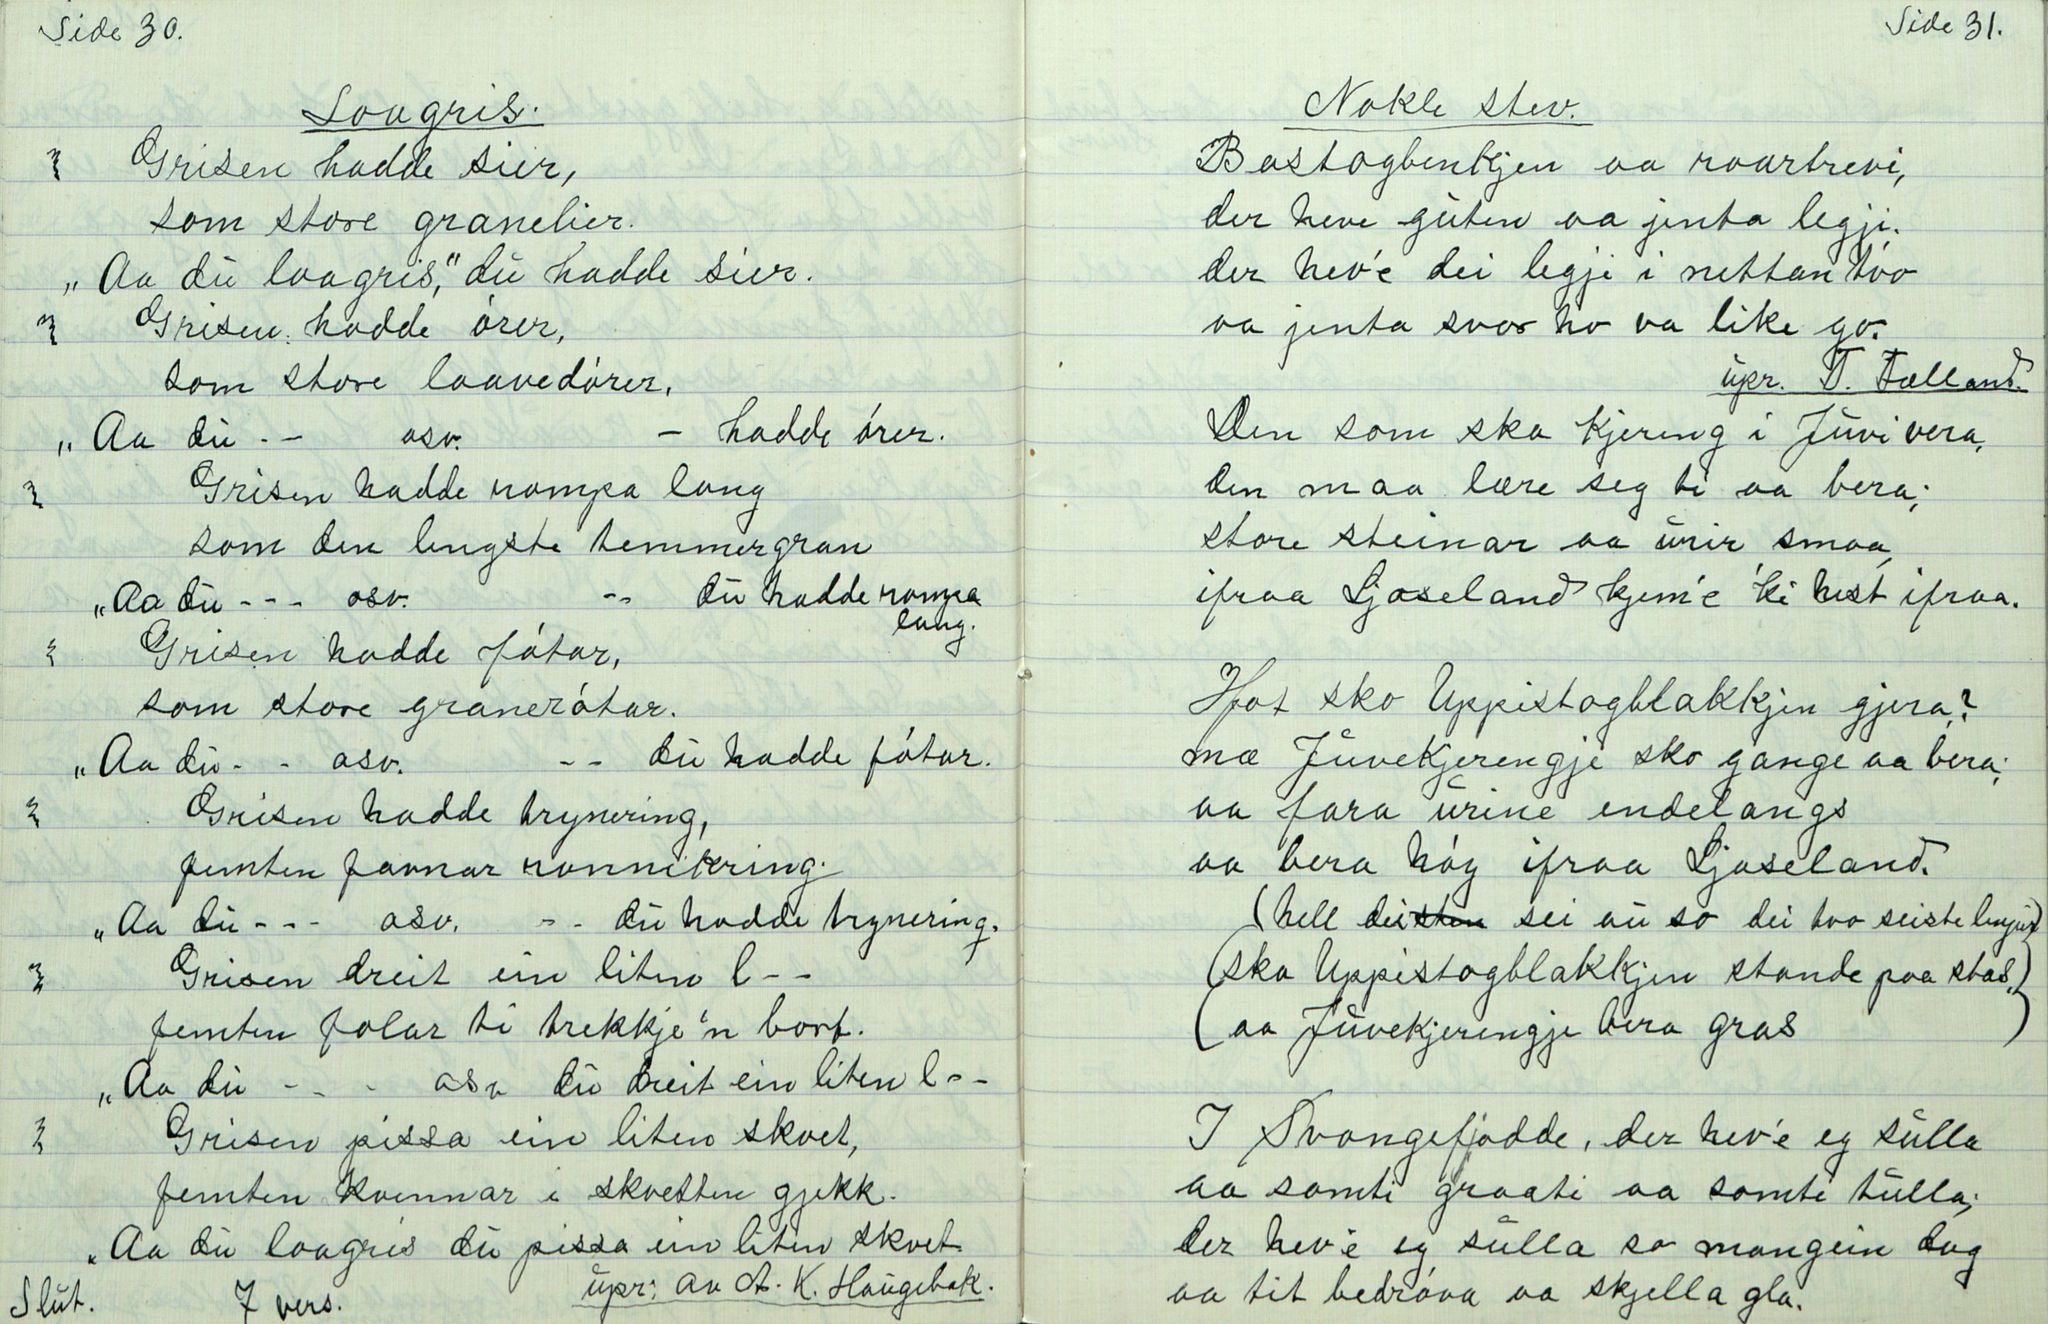 Side 30.
Loagris.
Grisen hadde sier,
som store granelier.
„Aa dŭ loagris," dŭ hadde sier.
Grisen hadde órer,
som store laavedórer.
„Aa dŭ - - osv. - hadde órer.
Grisen hadde rompa lang
som den lengste temmergran
„Aa dŭ - - - osv. -- dŭ hadde rompa
lang.
Grisen hadde fótar,
som store granerótar.
„Aa dŭ - - osv. -- dŭ hadde fótar.
Grisen hadde trynering,
femten famnar ronnikring.
„Aa dŭ - - - osv. -- dŭ hadde trynering.
Grisen dreit ein liten l--
femten folar ti trekkje'n bort.
„Aa dŭ - - - osv dŭ dreit ein liten l--
Grisen pissa ein liten skvet,
femten kvennar i skvetten gjekk.
„Aa dŭ loagris dŭ pissa ein liten skvet
Slŭt. 7 vers. ŭpr: av A. K. Haŭgebak.
Side 31.
Nokle stev.
Bostogbenkjen aa roartrevi,
der heve gŭten aa jenta legji.
der hev'e dei legje i nettan tvo
aa jenta svor ho va like go.
ŭpr. T. Fælland.
Den som ska kjering i Jŭvi vera,
den maa lære seg ti aa bera;
store steinar aa ŭrir smaa,
ifraa Ljoseland kjem'e 'ki hest ifraa.
Hfot sko Uppistogblakkjen gjera?
mæ Jŭvekjerengje sko gange aa bera;
aa fara ŭrine endelangs
aa bera hóy ifraa Ljoseland.
(hell dei sei aŭ so dei tvo seiste lenjŭr)
(ska Uppistogblakkjen stande paa stas,)
(aa Jŭvekjerengje bera gras)
I Svangefjødde, der hev'e eg sŭlla
aa somti graati aa somti tŭlla;
der hev'e eg sŭlla so mangein dag
aa tit bedróva aa skjella gla.